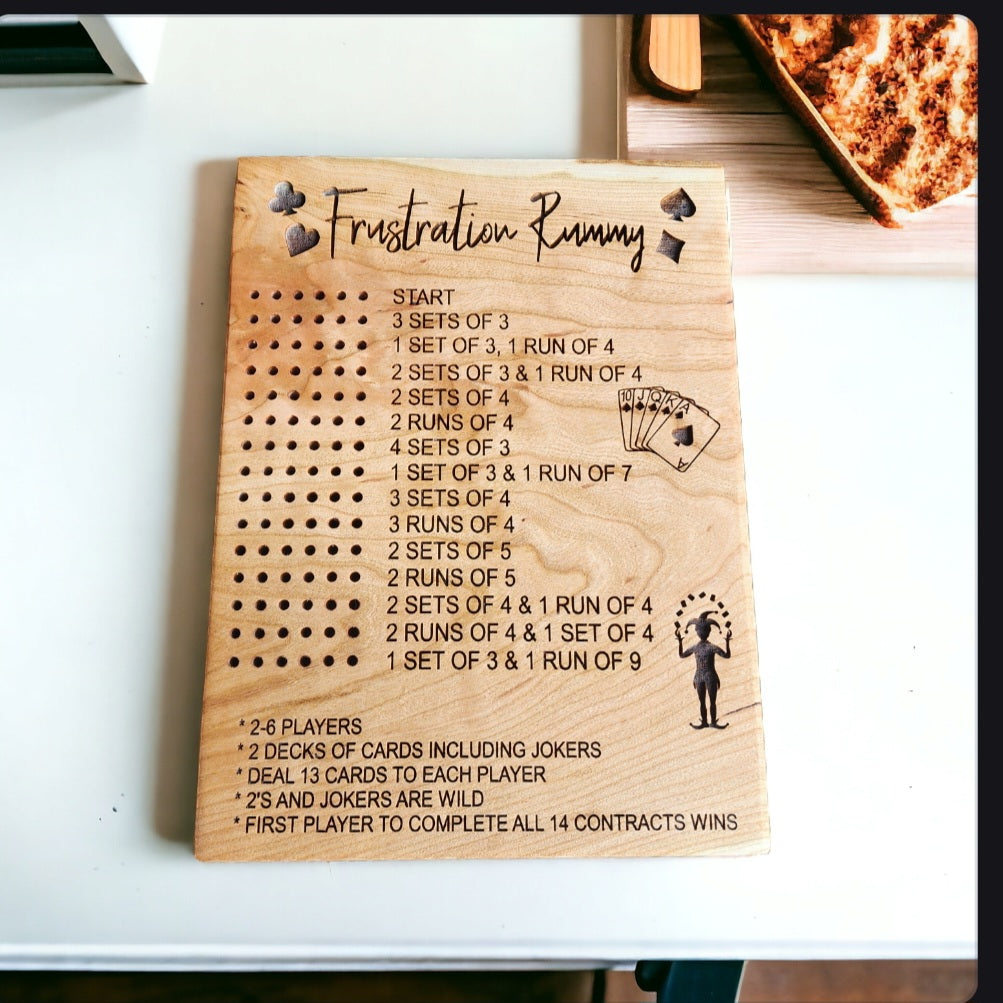 Frustration Rummy
START
3 SETS OF 3
1 SET OF 3, 1 RUN OF 4
2 SETS OF 3 & 1 RUN OF 4
2 SETS OF 4
2 RUNS OF 4
4 SETS OF 3
1 SET OF 3 & 1 RUN OF 7
3 SETS OF 4
3 RUNS OF 4
2 SETS OF 5
2 RUNS OF 5
2 SETS OF 4 & 1 RUN OF 4
2 RUNS OF 4 & 1 SET OF 4
1 SET OF 3 & 1 RUN OF 9
10 J Q K A
A
* 2-6 PLAYERS
* 2 DECKS OF CARDS INCLUDING JOKERS
* DEAL 13 CARDS TO EACH PLAYER
* 2'S AND JOKERS ARE WILD
* FIRST PLAYER TO COMPLETE ALL 14 CONTRACTS WINS